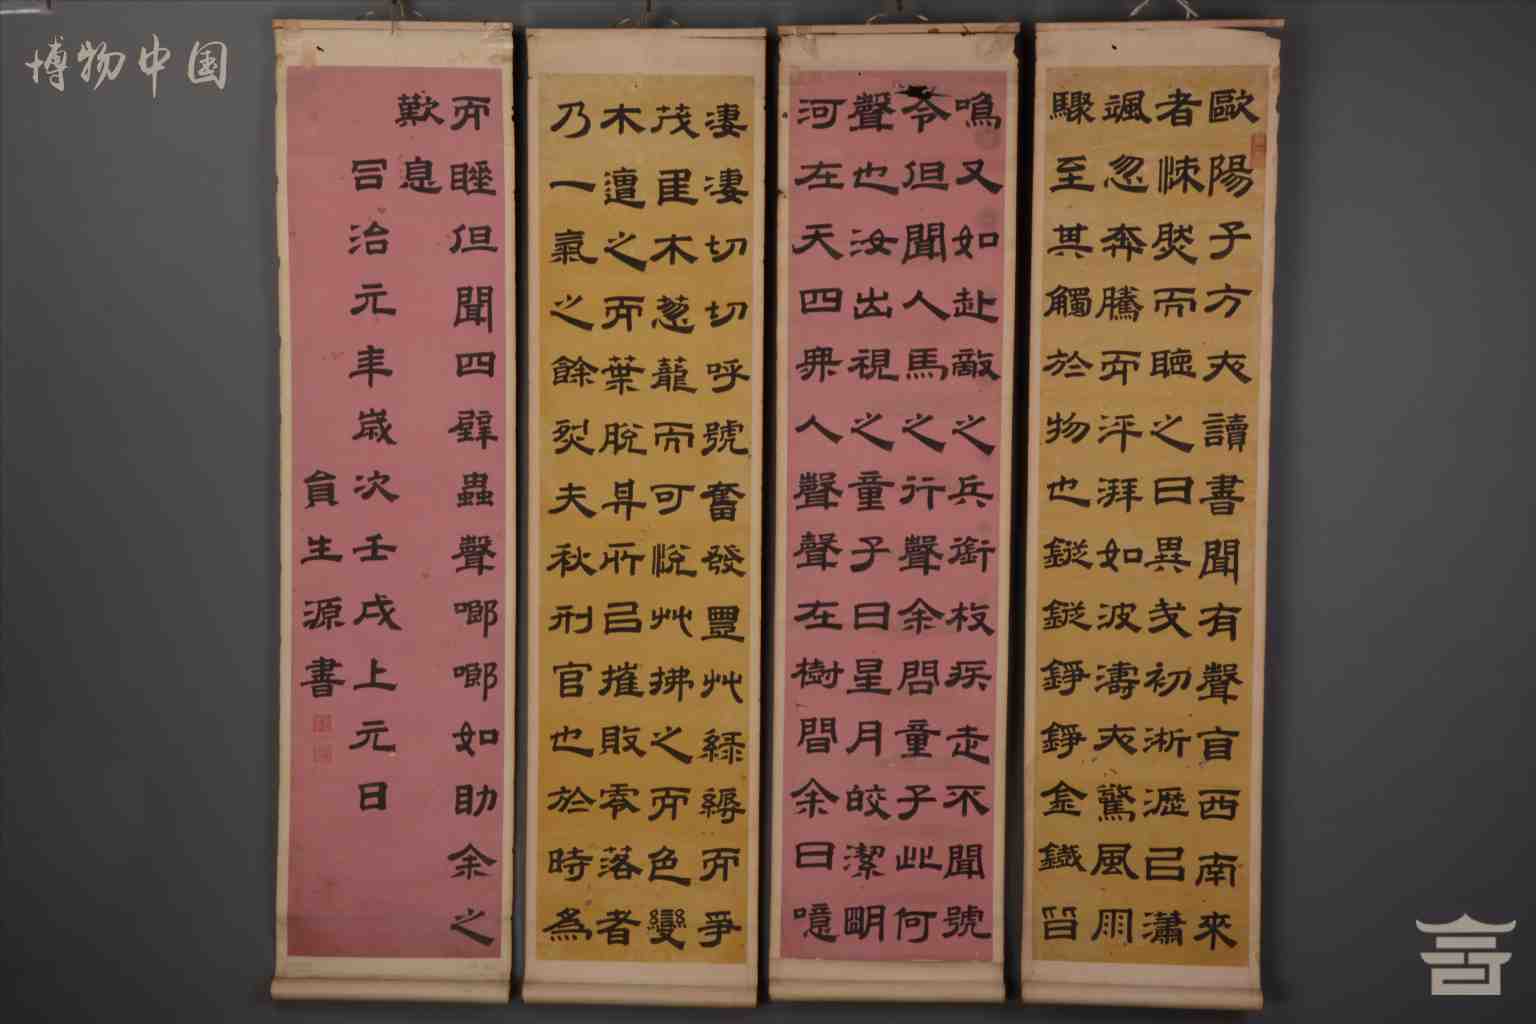 博物中国
歐陽子方夜讀書聞有聲自西南來
者悚然而聽之曰異哉初淅瀝以瀟
颯忽奔騰而泙湃如波濤夜驚風雨
驟至其觸於物也鏦鏦錚錚金鐵皆
鳴又如赴敵之兵銜枚疾走不聞號
令但聞人馬之行聲余問童子此何
聲也汝出視之童子曰星月皎潔明
河在天四無人聲聲在樹間余曰噫
淒淒切切呼號奮發豐艸綠縟而爭
茂佳木蔥蘢而可悅艸拂之而色變
木遭之而葉脫其所以摧敗零落者
乃一氣之餘烈夫秋刑官也於時為
而睡但聞四壁蟲聲唧唧如助余之
歎息
同治元年歲次壬戌上元日
員生源書